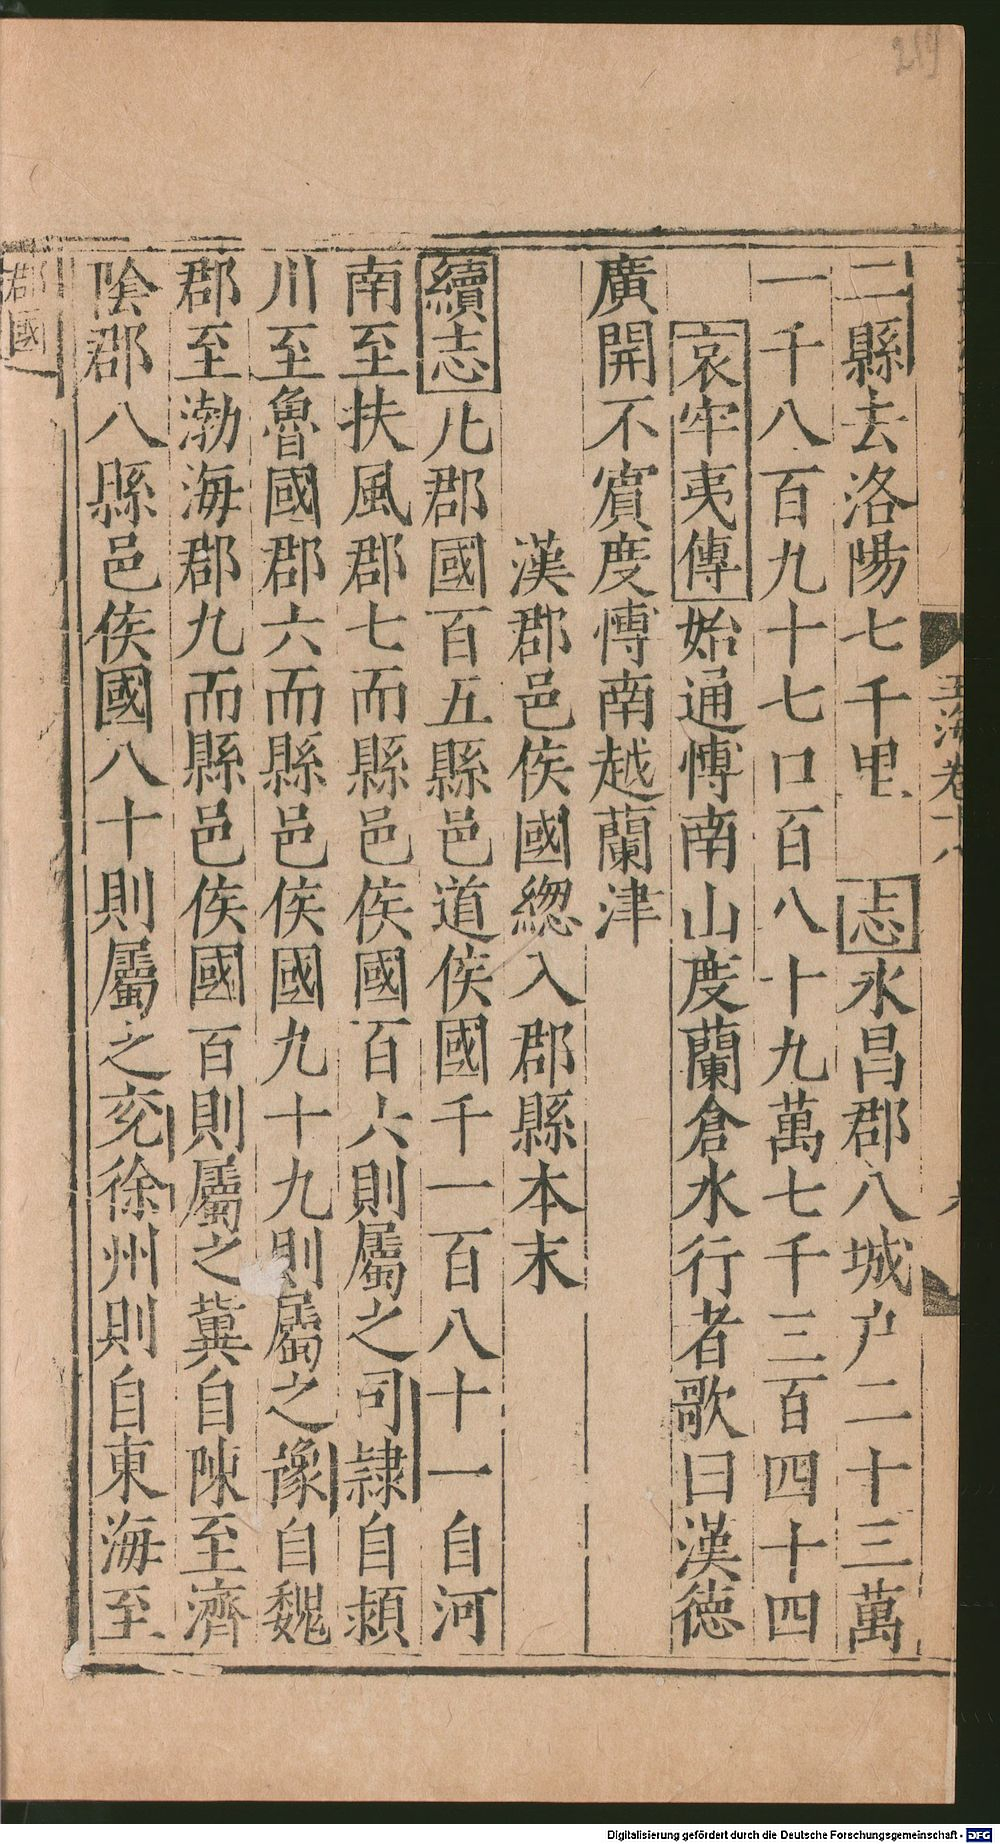 二縣去洛陽七千里 志永昌郡八城户二十三萬
一千八百九十七口百八十九萬七千三百四十四
哀牢夷傳始通愽南山度蘭倉水行者歌曰漢德
廣開不賔度愽南越蘭津
漢郡邑侯國緫入郡縣本末
續志凡郡國百五縣邑道侯國千一百八十一自河
南至扶風郡七而縣邑侯國百六則屬之司隷自潁
川至魯國郡六而縣邑侯國九十九則屬之豫自魏
郡至渤海郡九而縣邑侯國百則屬之冀自陳至濟
陰郡八縣邑侯國八十則屬之兖徐州則自東海至
郡國
玉海卷十八
219
Digitalisierung gefördert durch die Deutsche Forschungsgemeinschaft - DFG